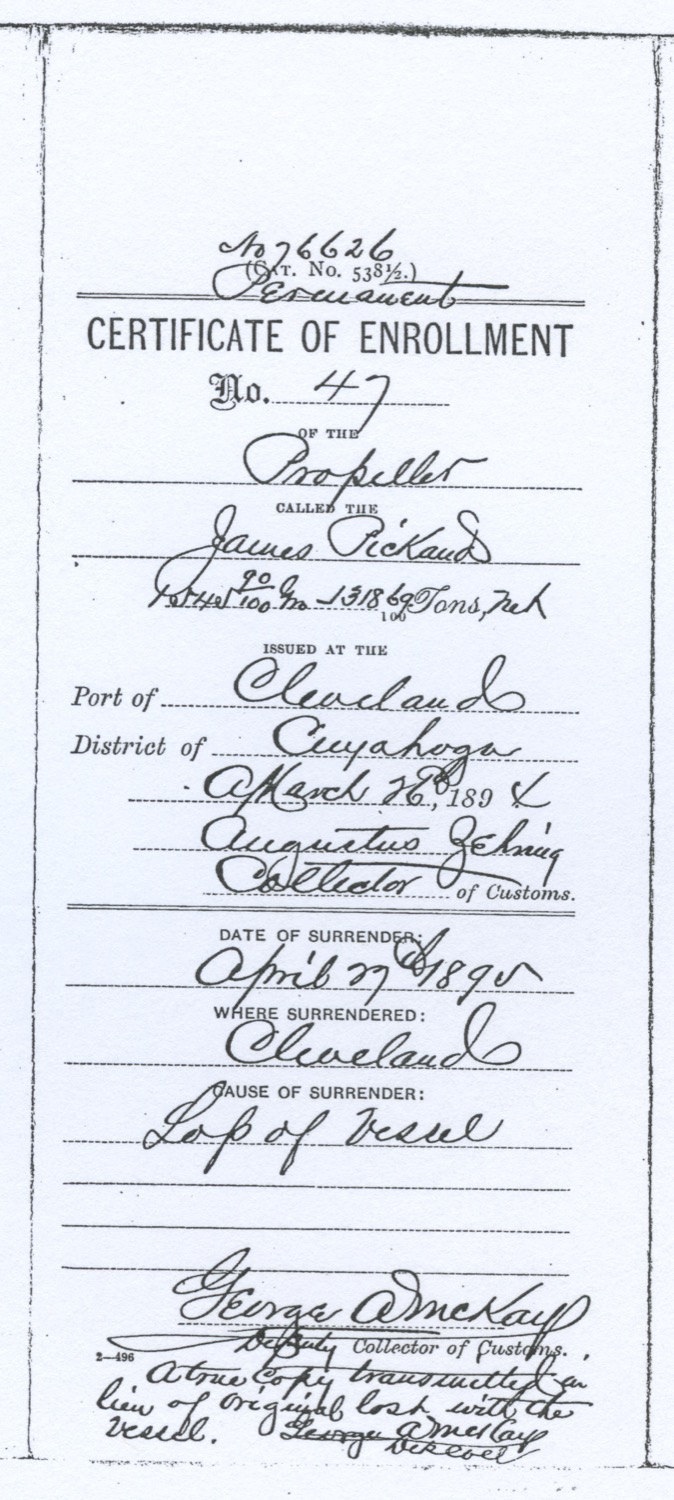 No 76626
(CAT. No. 538½.)
Permanent
CERTIFICATE OF ENROLLMENT
No. 47
OF THE
Propeller
CALLED THE
James Pickands
1545 90/100 Gro 1318 69/100 Tons, net
ISSUED AT THE
Port of Cleveland
District of Cuyahoga
March 28th, 1894
Augustus Zehring
Collector of Customs.
DATE OF SURRENDER:
April 27th 1895
WHERE SURRENDERED:
Cleveland
CAUSE OF SURRENDER:
Loss of Vessel
George A McKay
Deputy Collector of Customs.
2—496
A true Copy transmitted in
lieu of original lost with the
vessel. George A McKay